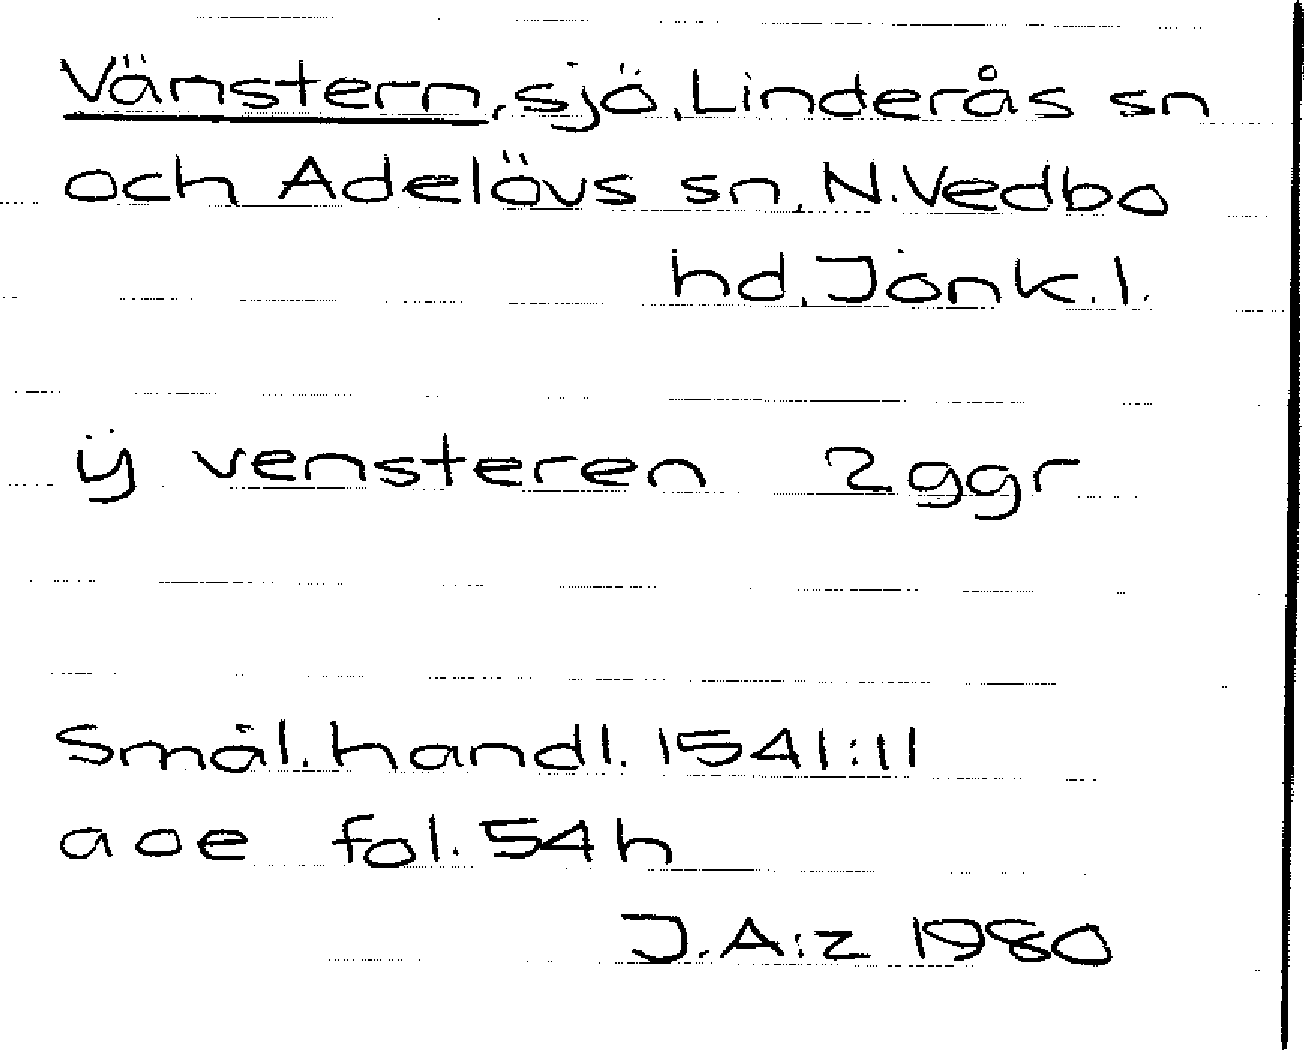 Vänstern, sjö, Linderås sn
och Adelövs sn, N. Vedbo
hd, Jönk. l.
ÿ vensteren 2 ggr
Smål. handl. 1541:11
aoe fol. 54 h
J. A:z 1980